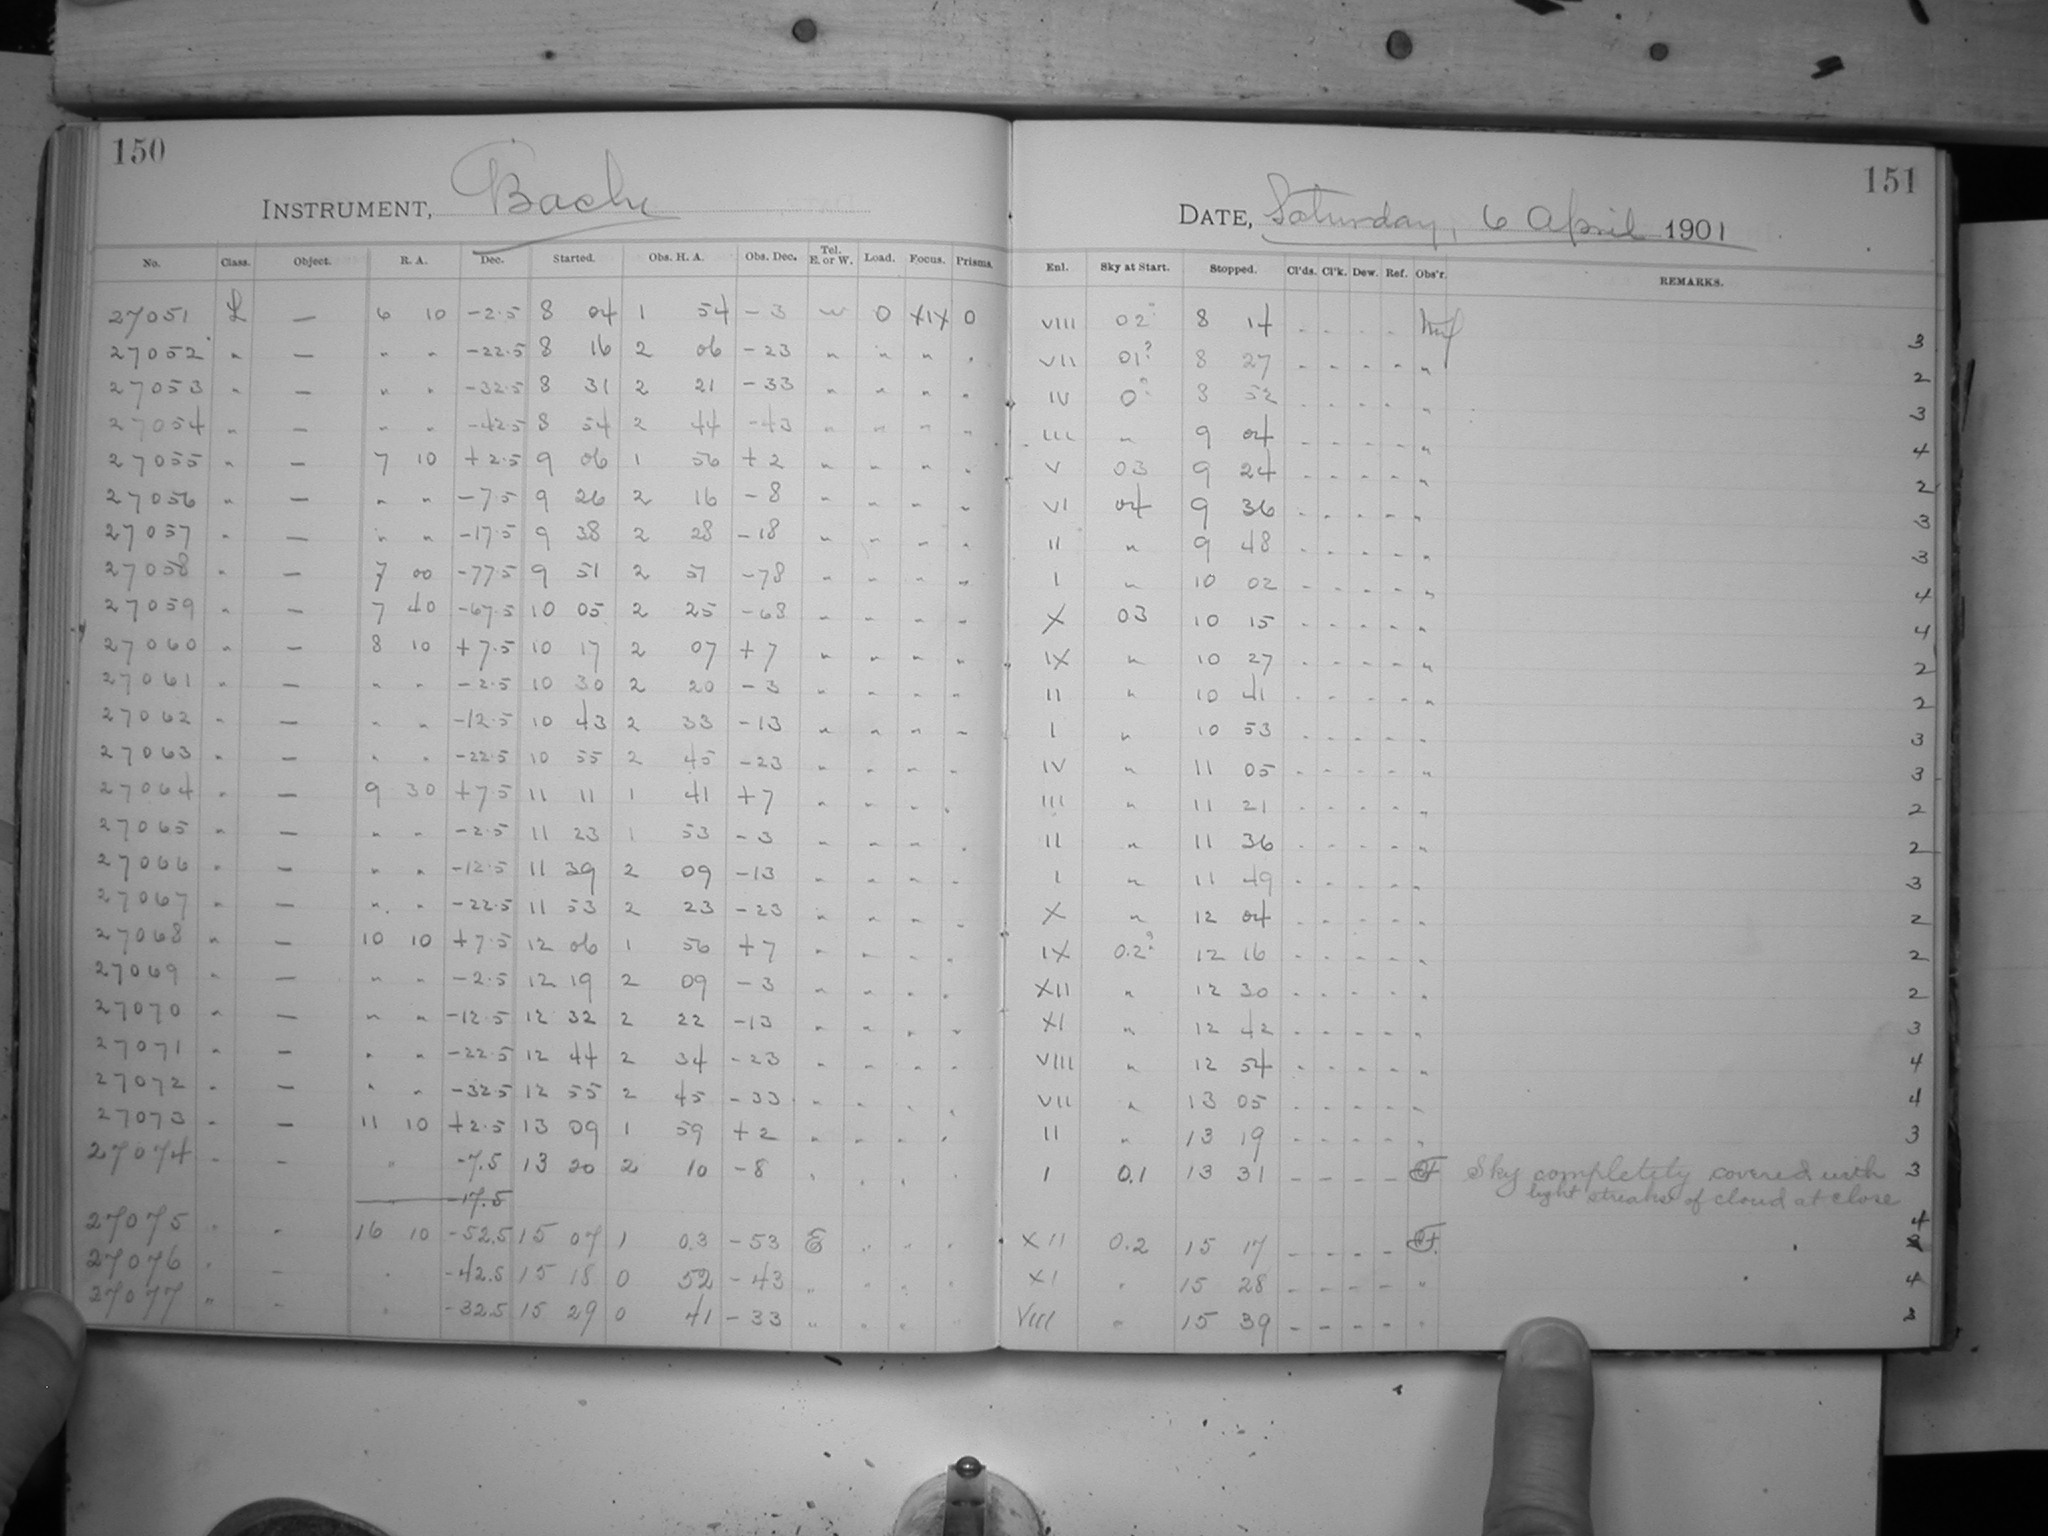 150
INSTRUMENT, Bache
No. Class. Object. R. A. Dec. Started. Obs. H. A. Obs. Dec. Tel. E. or W. Load. Focus. Prisms.
27051 L — 6 10 -2.5 8 04 1 54 -3 w 0 XIX 0
27052 " — " " -22.5 8 16 2 06 -23 " " " "
27053 " — " " -32.5 8 31 2 21 -33 " " " "
27054 " — " " -42.5 8 54 2 44 -43 " " " "
27055 " — 7 10 +2.5 9 06 1 56 +2 " " " "
27056 " — " " -7.5 9 26 2 16 -8 " " " "
27057 " — " " -17.5 9 38 2 28 -18 " " " "
27058 " — 7 00 -77.5 9 51 2 51 -78 " " " "
27059 " — 7 40 -67.5 10 05 2 25 -68 " " " "
27060 " — 8 10 +7.5 10 17 2 07 +7 " " " "
27061 " — " " -2.5 10 30 2 20 -3 " " " "
27062 " — " " -12.5 10 43 2 33 -13 " " " "
27063 " — " " -22.5 10 55 2 45 -23 " " " "
27064 " — 9 30 +7.5 11 11 1 41 +7 " " " "
27065 " — " " -2.5 11 23 1 53 -3 " " " "
27066 " — " " -12.5 11 39 2 09 -13 " " " "
27067 " — " " -22.5 11 53 2 23 -23 " " " "
27068 " — 10 10 +7.5 12 06 1 56 +7 " " " "
27069 " — " " -2.5 12 19 2 09 -3 " " " "
27070 " — " " -12.5 12 32 2 22 -13 " " " "
27071 " — " " -22.5 12 44 2 34 -23 " " " "
27072 " — " " -32.5 12 55 2 45 -33 " " " "
27073 " — 11 10 +2.5 13 09 1 59 +2 " " " "
27074 " — " -7.5 13 20 2 10 -8 " " " "
-17.5
27075 " - 16 10 -52.5 15 07 1 03 -53 E " " "
27076 " - " -42.5 15 18 0 52 -43 " " " "
27077 " - " -32.5 15 29 0 41 -33 " " " "
151
DATE, Saturday, 6 April 1901
Enl. Sky at Start. Stopped. Cl'ds. Cl'k. Dew. Ref. Obs'r. REMARKS.
VIII 02? 8 14 - - - - 3
VII 01? 8 27 - - - - " 2
IV 0? 8 52 - - - - " 3
III " 9 04 - - - - " 4
V 03 9 24 - - - - " 2
VI 04 9 36 - - - - " 3
II " 9 48 - - - - " 3
I " 10 02 - - - - " 4
X 03 10 15 - - - - " 4
IX " 10 27 - - - - " 2
II " 10 41 - - - - " 2
I " 10 53 - - - - " 3
IV " 11 05 - - - - " 3
III " 11 21 - - - - " 2
II " 11 36 - - - - " 2
I " 11 49 - - - - " 3
X " 12 04 - - - - " 2
IX 0.2? 12 16 - - - - " 2
XII " 12 30 - - - - " 2
XI " 12 42 - - - - " 3
VIII " 12 54 - - - - " 4
VII " 13 05 - - - - " 4
II " 13 19 - - - - " 3
I 0.1 13 31 - - - - Sky completely covered with 3
light streaks of cloud at close
XII 0.2 15 17 - - - - 4
XI " 15 28 - - - - " 4
VIII " 15 39 - - - - " 3